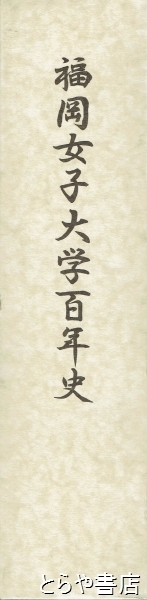 福岡女子大学百年史
とらや書店